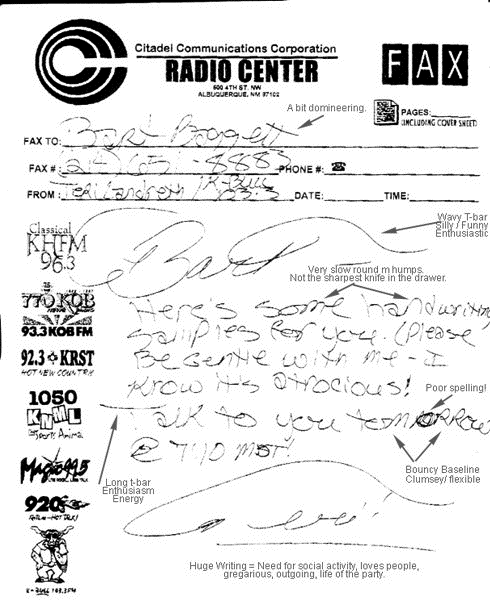 Citadel Communications Corporation
RADIO CENTER
500 4TH ST. NW
ALBUQUERQUE, NM 87102
FAX
A bit domineering.
PAGES:
(INCLUDING COVER SHEET)
FAX TO: Bart Baggett
FAX #: 8883 PHONE #:
FROM: Teri Landreth / K-Bull 103.3 DATE: TIME:
Wavy T-bar
Silly / Funny
Enthusiastic
Classical
KHFM
96.3
Bart
Very slow round m humps.
Not the sharpest knife in the drawer.
770 KOB
93.3 KOB FM
92.3 KRST
HOT NEW COUNTRY
1050
KNML
The Sports Animal
Magic 99.5
920
K-BULL 103.3FM
Here's some handwriting
samples for you. (Please
Be gentle with me - I
know it's atrocious!
Poor spelling!
Talk to you tomorrow
@ 7:40 MST!
Long t-bar
Enthusiasm
Energy
Bouncy Baseline
Clumsey/ flexible
Teri
Huge Writing = Need for social activity, loves people,
gregarious, outgoing, life of the party.